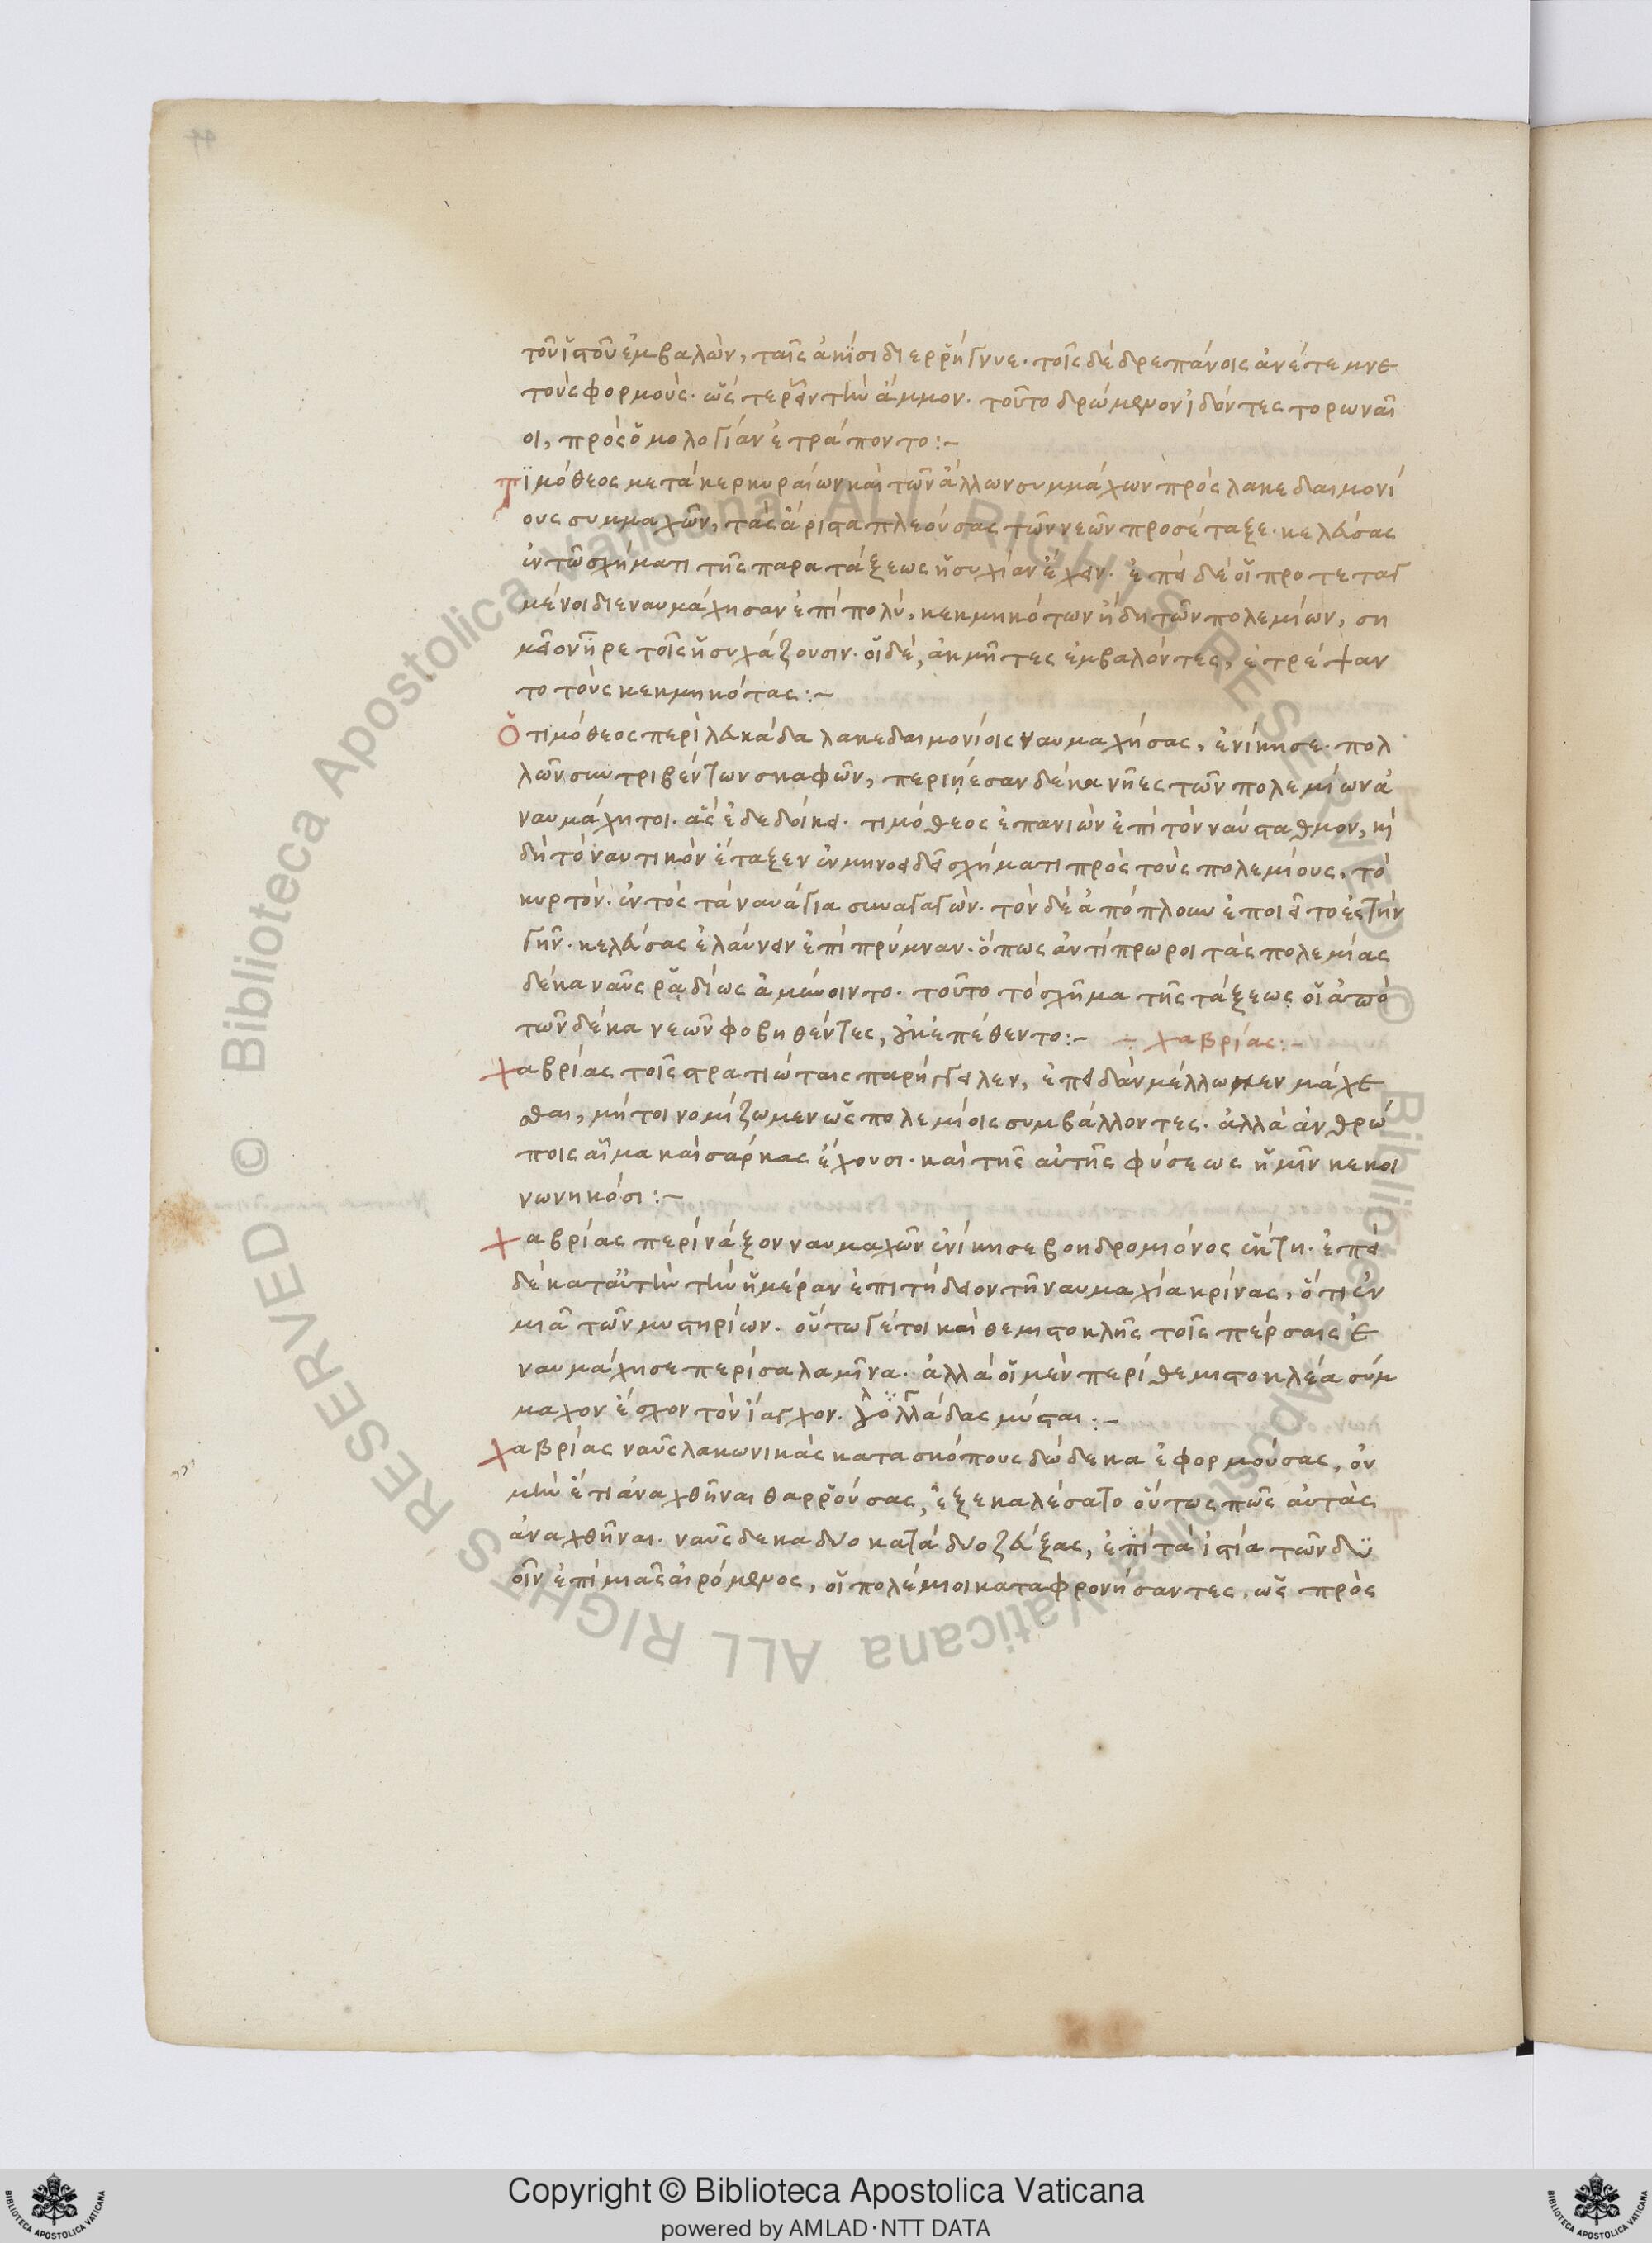 τοῦ ἱστοῦ ἐμβαλὼν, ταῖς ἀκίσι διερρήγνυε· τοῖς δὲ δρεπάνοις ἀνέτεμνε
τοὺς φορμούς· ὥστε ῥεῖν τὴν ἄμμον· τοῦτο δρώμενον ἰδόντες τορωναῖ
οι, πρὸς ὁμολογίαν ἐτράποντο:-
Τϊμόθεος μετὰ κερκυραίων καὶ τῶν ἄλλων συμμάχων πρὸς λακεδαιμονί
ους συμμαχῶν, τὰς ἄριστα πλεούσας τῶν νεῶν προσέταξε· κελεύσας
ἐν τῶ σχήματι τῆς παρατάξεως ἡσυχίαν ἔχειν· ἐπεὶ δὲ οἱ προτεταγ
μένοι διεναυμάχησαν ἐπιπολὺ, κεκμηκότων ἤδη τῶν πολεμίων, ση
μεῖον ἦρε τοῖς ἡσυχάζουσιν· οἱ δὲ, ἀκμῆτες ἐμβαλόντες, ἐτρέψαν
το τοὺς κεκμηκότας:-
Ὁ τιμόθεος περὶ λευκάδα λακεδαιμονίοις ναυμαχήσας, ἐνίκησε· πολ
λῶν συντριβέντων σκαφῶν, περιῄεσαν δέκα νῆες τῶν πολεμίων ἀ
ναυμάχητοι· ἃς ἐδεδοίκει· τιμόθεος ἐπανιὼν ἐπὶ τὸν ναύσταθμον, κἠ
δὴ τὸ ναυτικὸν ἔταξεν ἐν μηνοειδεῖ σχήματι πρὸς τοὺς πολεμίους, τὸ
κυρτόν· ἐντὸς τὰ ναυάγια συναγαγών· τὸν δὲ ἀπόπλουν ἐποιεῖτο ἐς τὴν
γῆν· κελεύσας ἐλαύνειν ἐπὶ πρύμναν· ὅπως ἀντίπρωροι τὰς πολεμίας
δέκα ναῦς ῥᾳδίως ἀμύνοιντο· τοῦτο τὸ σχῆμα τῆς τάξεως οἱ ἀπὸ
τῶν δέκα νεῶν φοβηθέντες, οὐκ ἐπέθεντο:- ÷ χαβρίας:-
Χαβρίας τοῖς στρατιώταις παρήγγειλεν, ἐπειδὰν μέλλωμεν μάχε
σθαι, μήτοι νομίζωμεν ὡς πολεμίοις συμβάλλοντες· ἀλλὰ ἀνθρώ
ποις αἷμα καὶ σάρκας ἔχουσι· καὶ τῆς αὐτῆς φύσεως ἡμῖν κεκοι
νωνηκόσι:-
Χαβρίας περὶ νάξον ναυμαχῶν ἐνίκησε βοηδρομιόνος ἕκτη· ἐπεὶ
δὲ κατ αὐτὴν τὴν ἡμέραν ἐπιτήδειον τῆ ναυμαχία κρίνας, ὅτι ἐν
μιᾶ τῶν μυστηρίων· οὕτω γέ τοι καὶ θεμιστοκλῆς τοῖς πέρσαις ἐ
ναυμάχησε περὶ σαλαμῖνα· ἀλλὰ οἱ μὲν περὶ θεμιστοκλέα σύμ
μαχον ἔσχον τὸν ἴαγχον· μύσται:-
Χαβρίας ναῦς λακωνικὰς κατασκόπους δώδεκα ἐφορμούσας, οὐ
μὴν ἔτι ἀναχθῆναι θαρρούσας, ἐξεκαλέσατο οὕτως πῶς αὐτὰς
ἀναχθῆναι· ναῦς δεκαδύο κατὰ δύο ζεύξας, ἐπὶ τὰ ἱστία τῶν δυ
οῖν ἐπὶ μιᾶς αἰρόμενος, οἱ πολέμιοι καταφρονήσαντες, ὡς πρὸς
Copyright © Biblioteca Apostolica Vaticana
powered by AMLAD·NTT DATA
© Biblioteca Apostolica Vaticana ALL RIGHTS RESERVED
© Biblioteca Apostolica Vaticana ALL RIGHTS RESERVED
BIBLIOTECA APOSTOLICA VATICANA
BIBLIOTECA APOSTOLICA VATICANA